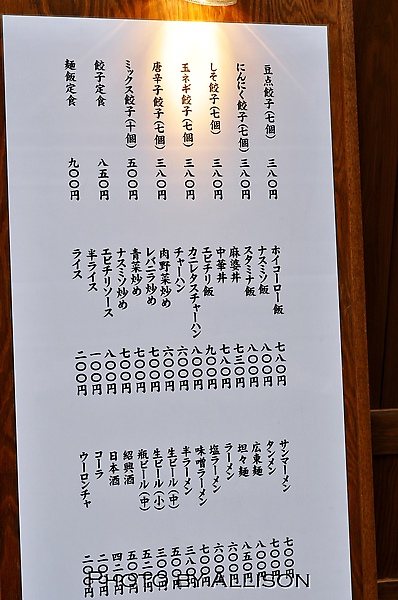 豆点餃子(七個) 三八〇円
にんにく餃子(七個) 三八〇円
しそ餃子(七個) 三八〇円
玉ネギ餃子(七個) 三八〇円
唐辛子餃子(七個) 三八〇円
ミックス餃子(十個) 五〇〇円
餃子定食 八五〇円
麺飯定食 九〇〇円
ホイコーロー飯 七八〇円
ナスミソ飯 八〇〇円
スタミナ飯 八〇〇円
麻婆丼 七三〇円
中華丼 七八〇円
エビチリ飯 九〇〇円
カニレタスチャーハン 八〇〇円
チャーハン 六〇〇円
肉野菜炒め 六〇〇円
レバニラ炒め 七〇〇円
青菜炒め 七〇〇円
ナスミソ炒め 七〇〇円
エビチリソース 八〇〇円
半ライス 一〇〇円
ライス 二〇〇円
サンマーメン 七〇〇円
タンメン 七〇〇円
広東麺 八〇〇円
坦々麺 八五〇円
ラーメン 六〇〇円
塩ラーメン 六〇〇円
味噌ラーメン 七〇〇円
半ラーメン 三八〇円
生ビール(中) 五〇〇円
生ビール(小)
瓶ビール(中)
紹興酒
日本酒 四二〇円
コーラ 二〇〇円
ウーロンチャ 二〇〇円
PHOTO BY ALLISON